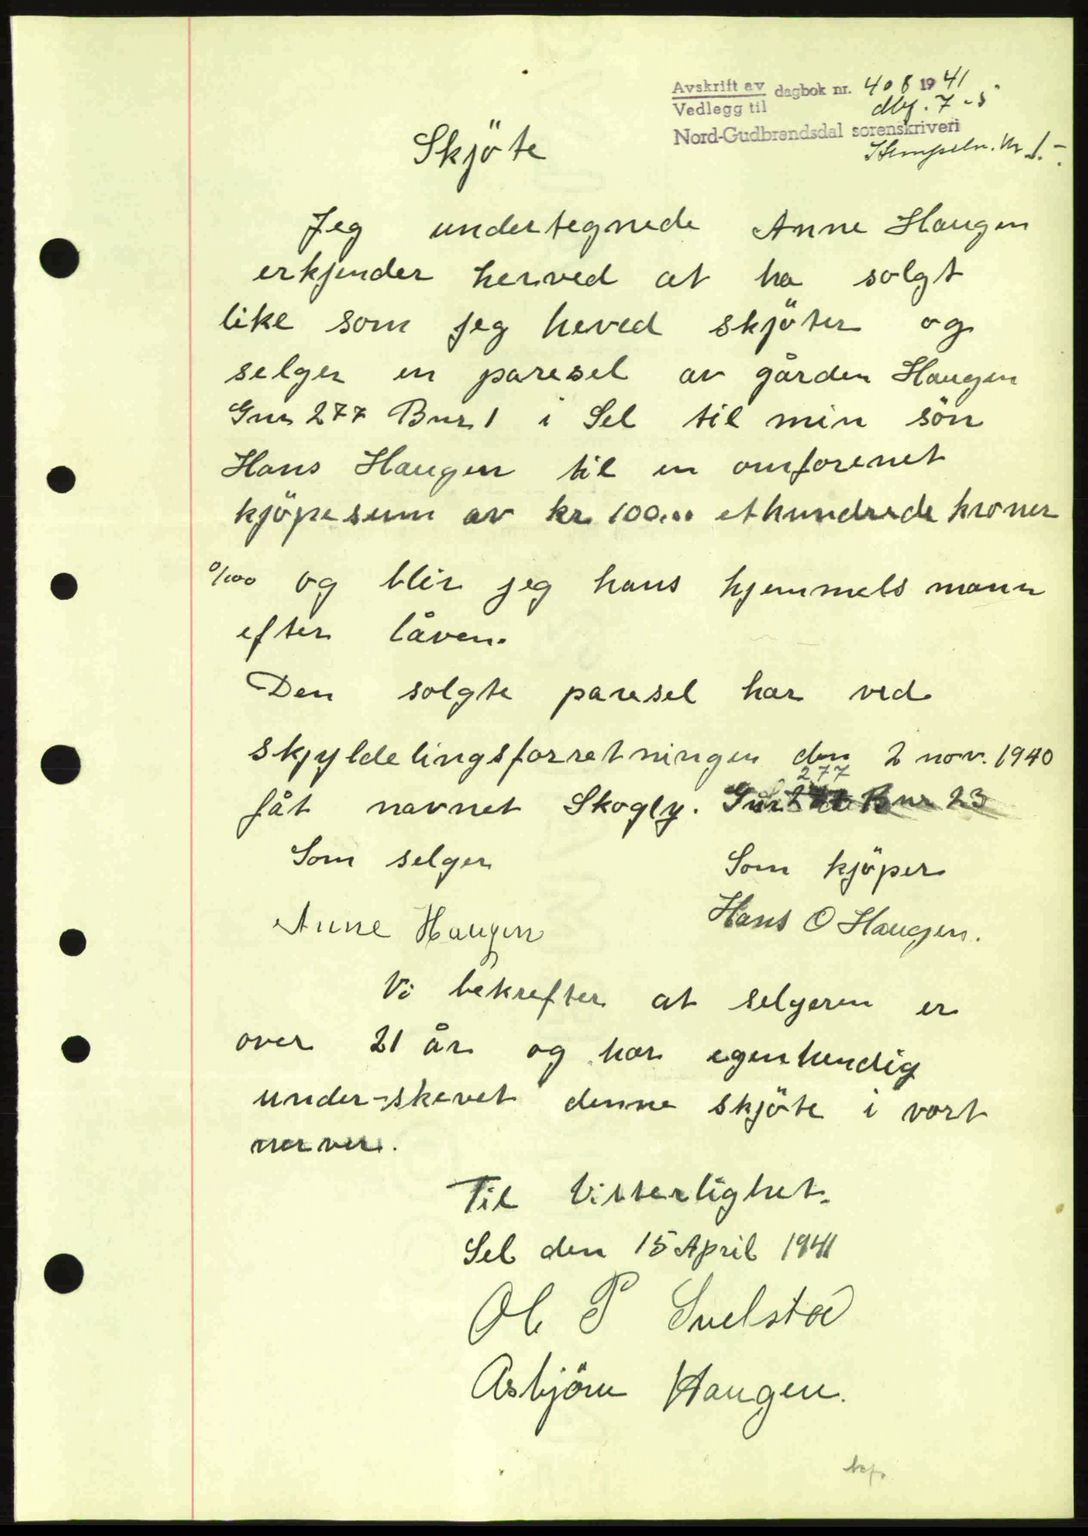 Avskrift av dagbok nr. 408 1941
Vedlegg til dbf. 7-5
Nord-Gudbrandsdal sorenskriveri
Stempelm. kr 1.-
Skjöte
Jeg undertegnede Anne Haugen
erkjender herved at ha solgt
like som jeg heved skjöter og
selger en paresel av gården Haugen
Gnr 277 Bnr 1 i Sel til min sön
Hans Haugen til en omforenet
kjöpesum av kr. 100.00 ethundrede kroner
0/100 og blir jeg hans hjemmels mann
efter låven.
Den solgte paresel har ved
skjyldelingsforretningen den 2 nov. 1940
fåt navnet Skogly. Gnr 277 Bnr 23
Som selger
Som kjöper
Anne Haugen
Hans O Haugen.
Vi bekrefter at selgeren er
over 21 år og har egenhendig
under-skevet denne skjöte i vort
nerver.
Til Vitterlighet.
Sel den 15 April 1941
Ol P Suelstad
Asbjörn Haugen.